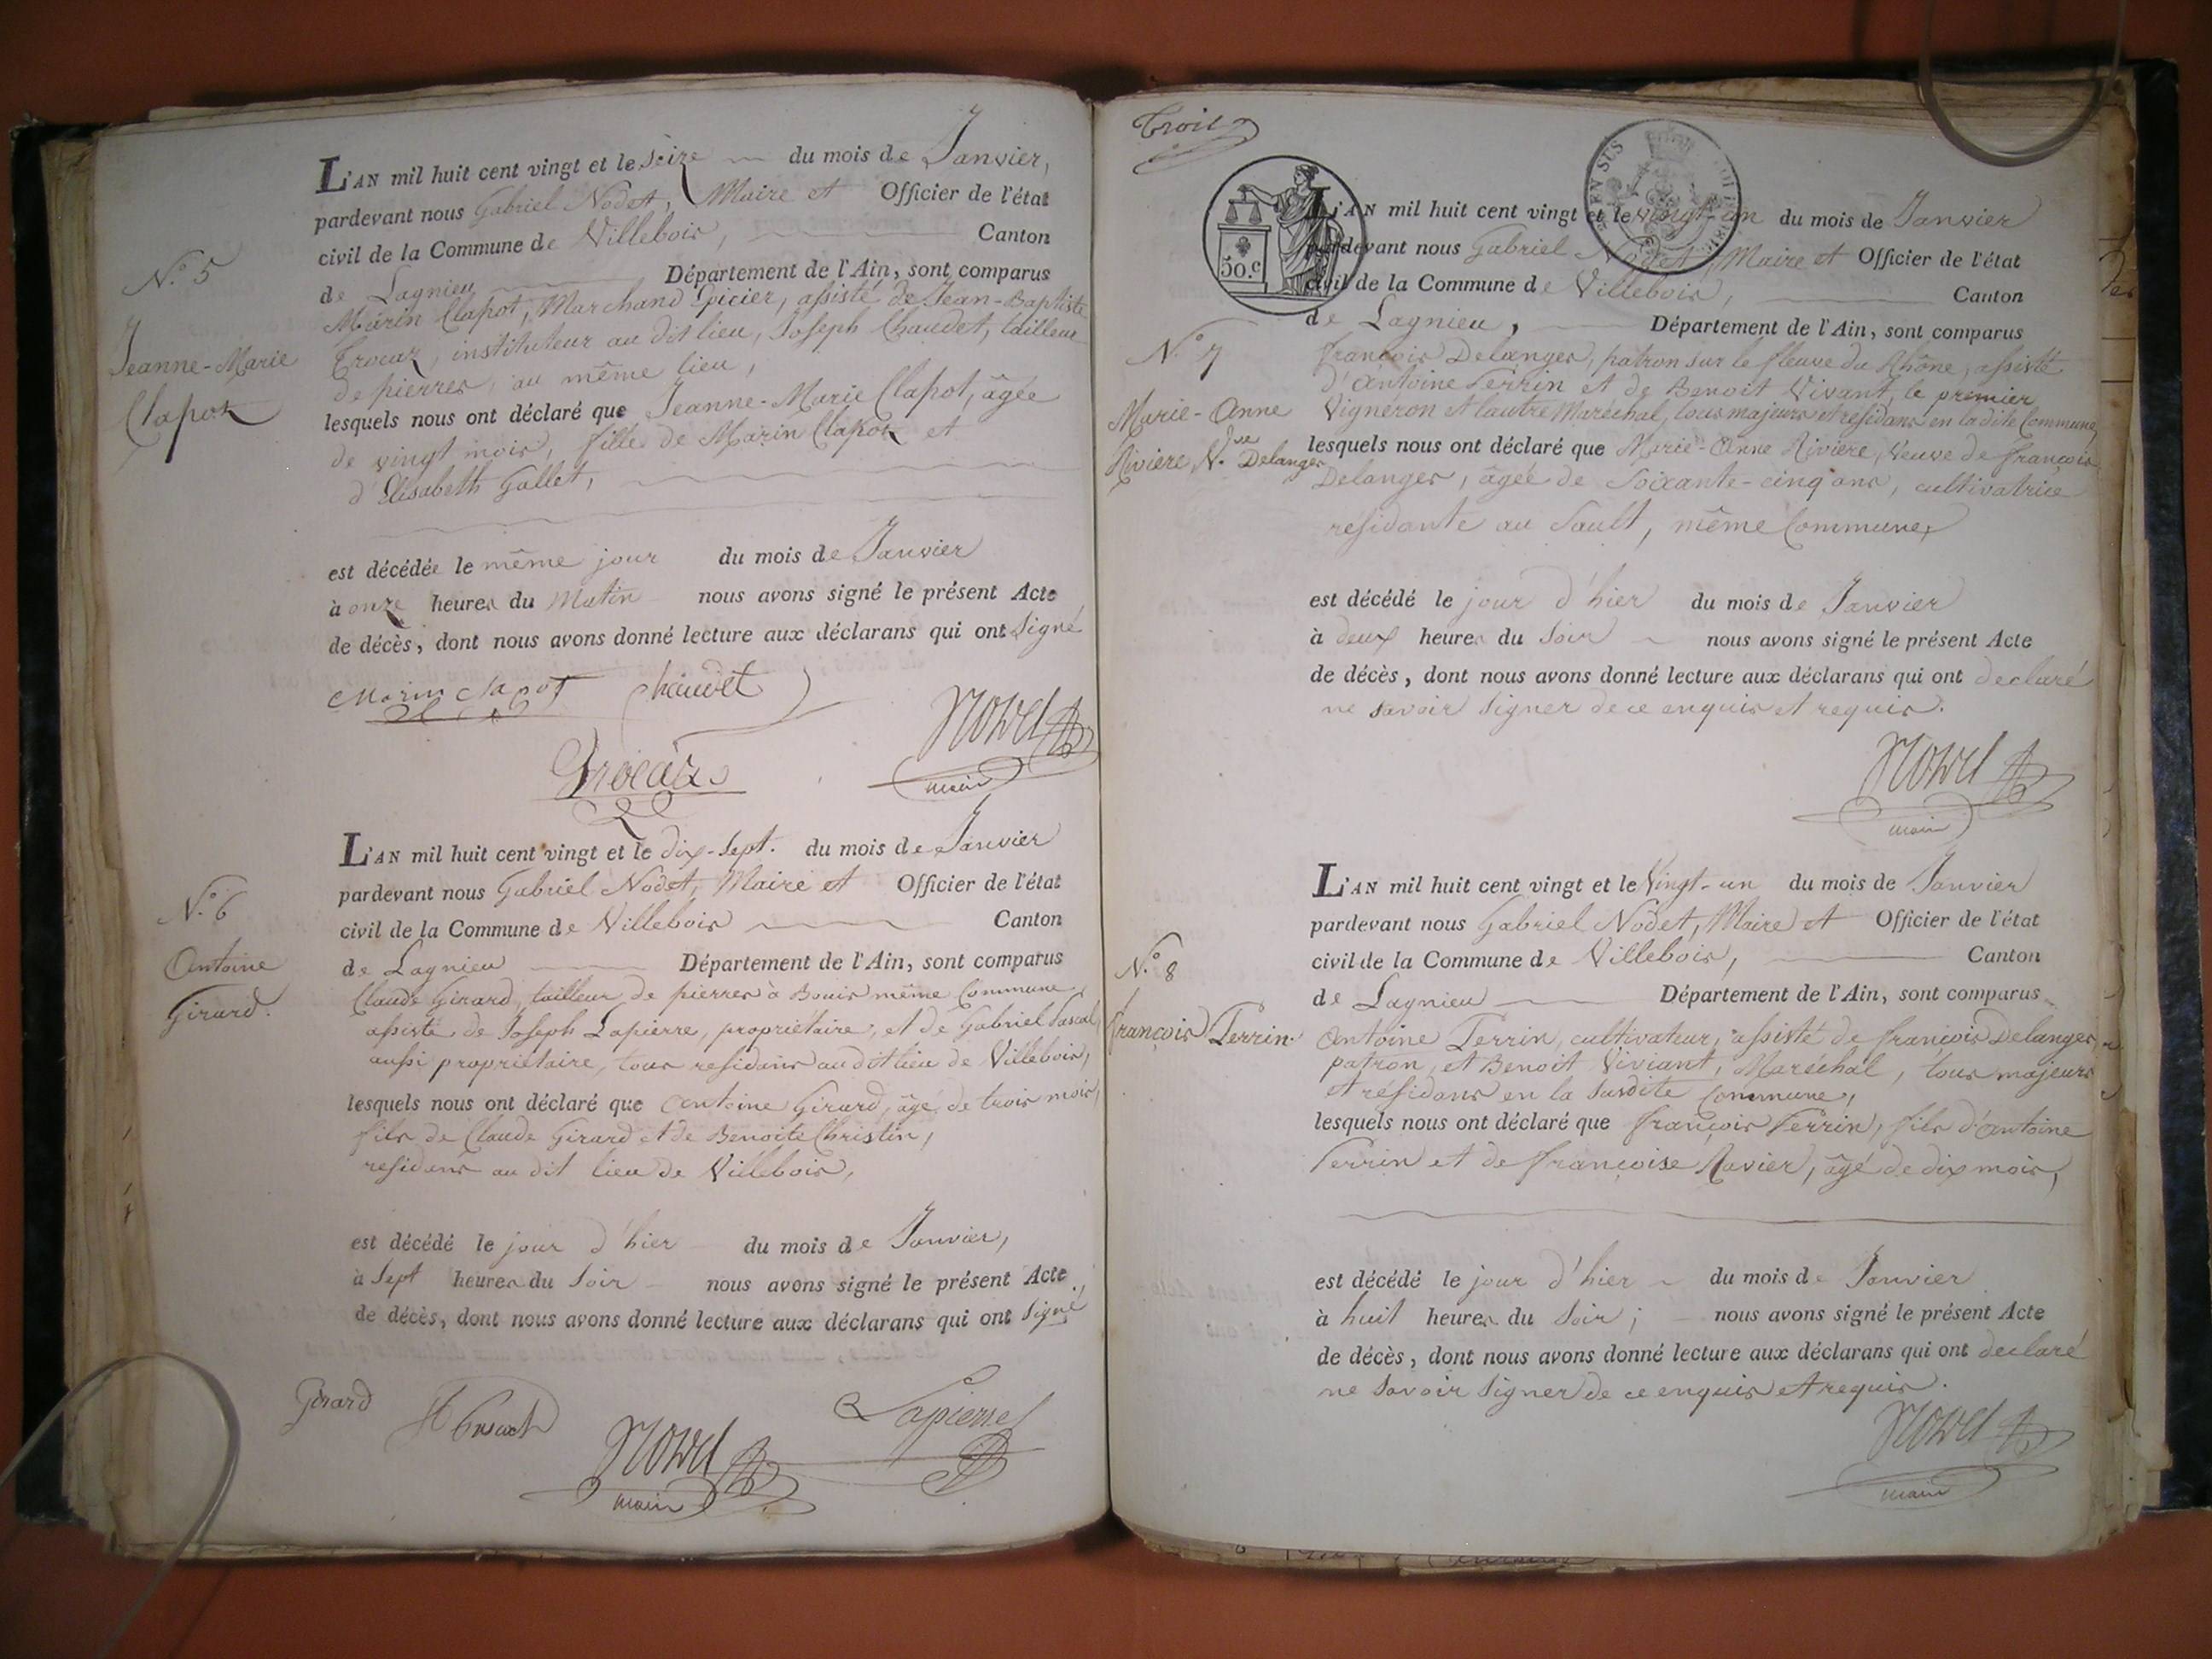 N.º 5
Jeanne-Marie
Clapot
L'AN mil huit cent vingt et le seize du mois de Janvier,
pardevant nous Gabriel Nodet, Maire et Officier de l'état
civil de la Commune de Villebois, Canton
de Lagnieu Département de l'Ain, sont comparus
Marin Clapot, Marchand Epicier, assisté de Jean-Baptiste
Trocaz, instituteur au dit lieu, Joseph Chaudet, tailleur
de pierres, au même lieu,
lesquels nous ont déclaré que Jeanne-Marie Clapot, âgée
de vingt mois, fille de Marin Clapot et
d'Elisabeth Gallet,
est décédée le même jour du mois de Janvier
à onze heures du Matin nous avons signé le présent Acte
de décès, dont nous avons donné lecture aux déclarans qui ont Signé
Marin Clapot Chaudet
Nodet
Trocaz
maire
N.º 6
Antoine
Girard.
L'AN mil huit cent vingt et le dix-sept. du mois de Janvier
pardevant nous Gabriel Nodet, Maire et Officier de l'état
civil de la Commune de Villebois Canton
de Lagnieu Département de l'Ain, sont comparus
Claude Girard, tailleur de pierres à Bouis même Commune,
assisté de Joseph Lapierre, propriétaire, et de Gabriel Pascal,
aussi propriétaire, tous residans audit lieu de Villebois,
lesquels nous ont déclaré que Antoine Girard, âgé de trois mois,
fils de Claude Girard et de Benoite Christin,
residens au dit lieu de Villebois,
est décédé le jour d'hier du mois de Janvier,
à Sept heures du Soir nous avons signé le présent Acte
de décès, dont nous avons donné lecture aux déclarans qui ont Signé
Girard
Lapierre
Nodet
maire
Trois
50.c
L'AN mil huit cent vingt et le vingt-un du mois de Janvier
pardevant nous Gabriel Nodet, Maire et Officier de l'état
civil de la Commune de Villebois, Canton
de Lagnieu, Département de l'Ain, sont comparus
N.º 7
Marie-Anne
Riviere, V.ve Delanger
François Delanger, patron sur le fleuve du Rhône, assisté
d'Antoine Perrin et de Benoit Vivant, le premier
Vigneron et l'autre Maréchal, tous majeurs et residans en la dite Commune,
lesquels nous ont déclaré que Marie-Anne Riviere, Veuve de François
Delanger, âgée de Soixante-cinq ans, cultivatrice
résidante au Sault, même Commune,
est décédé le jour d'hier du mois de Janvier
à deux heures du Soir nous avons signé le présent Acte
de décès, dont nous avons donné lecture aux déclarans qui ont declaré
ne savoir signer de ce enquis et requis.
Nodet
maire
L'AN mil huit cent vingt et le Vingt-un du mois de Janvier
pardevant nous Gabriel Nodet, Maire et Officier de l'état
civil de la Commune de Villebois, Canton
de Lagnieu Département de l'Ain, sont comparus
N.º 8
François Perrin.
Antoine Perrin, cultivateur, assisté de François Delanger,
patron, et Benoit Viviant, Maréchal, tous majeurs
et résidans en la susdite Commune,
lesquels nous ont déclaré que François Perrin, fils d'Antoine
Perrin et de Françoise Ravier, âgé de dix mois,
est décédé le jour d'hier du mois de Janvier
à huit heures du Soir; nous avons signé le présent Acte
de décès, dont nous avons donné lecture aux déclarans qui ont declaré
ne savoir signer de ce enquis et requis.
Nodet
maire